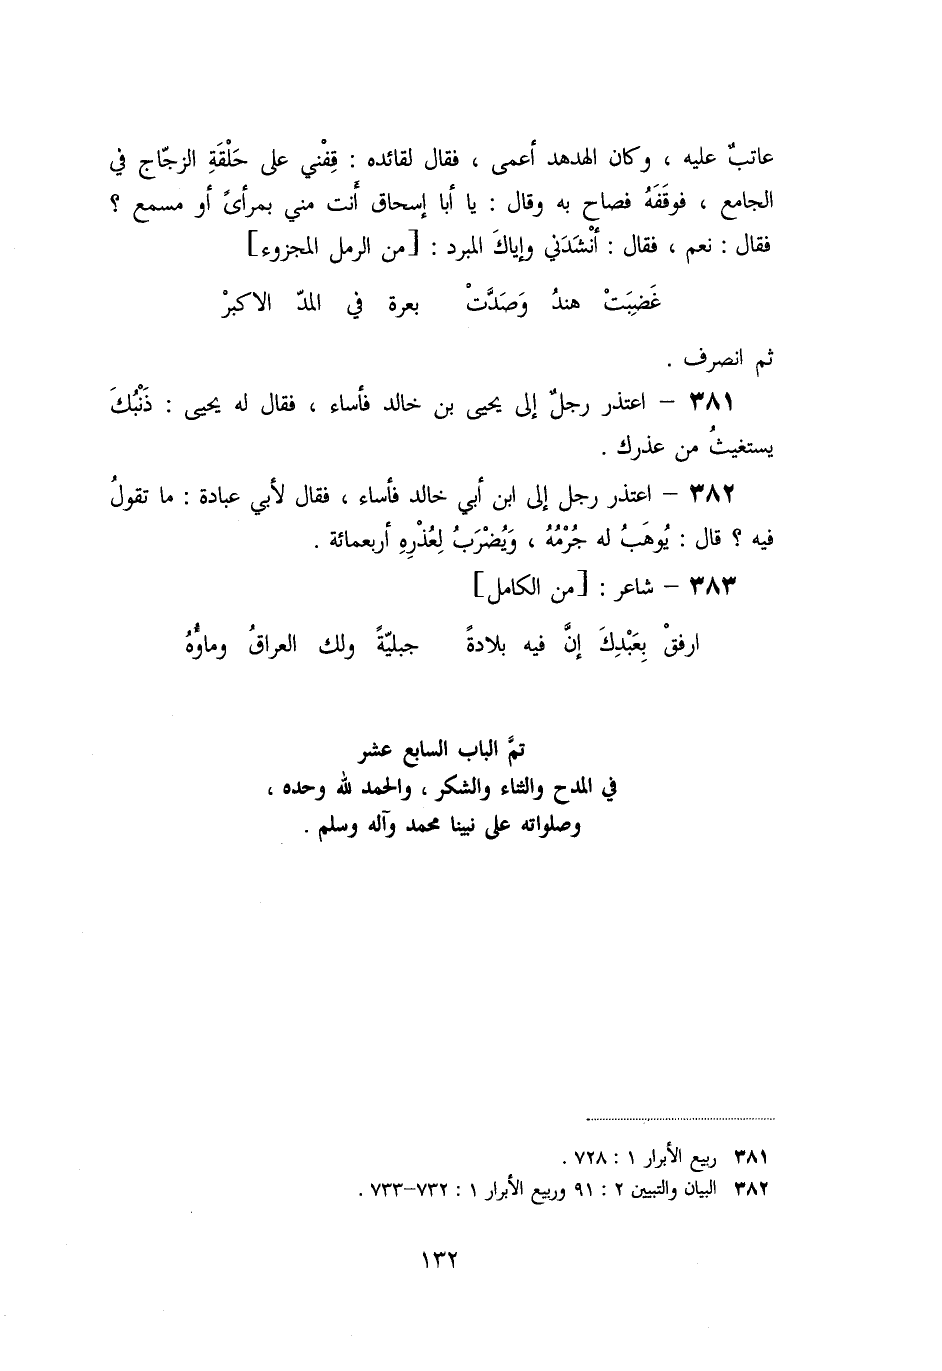 عاتبٌ عليه ، وكان الهدهد أعمى ، فقال لقائده : قِفْني على حَلْقَةِ الزجّاج في
الجامع ، فوقَفَهُ فصاح به وقال : يا أبا إسحاق أنت مني بمرأىً أو مسمع ؟
فقال : نعم ، فقال : أنْشَدَني وإياكَ المبرد : [من الرمل المجزوء]
غَضِبَتْ هندُ وَصَدَّتْ بعرة في المدّ الاكبرْ
ثم انصرف .
٣٨١ – اعتذر رجلٌ إلى يحيى بن خالد فأساء ، فقال له يحيى : ذَنْبُكَ
يستغيثُ من عذرك .
٣٨٢ – اعتذر رجل إلى ابن أبي خالد فأساء ، فقال لأبي عبادة : ما تقولُ
فيه ؟ قال : يُوهَبُ له جُرْمُهُ ، وَيُضْرَبُ لِعُذْرِهِ أربعمائة .
٣٨٣ – شاعر : [من الكامل]
ارفقْ بِعَبْدِكَ إنَّ فيه بلادةً جبليّةً ولك العراقُ وماؤُهُ
تمَّ الباب السابع عشر
في المدح والثناء والشكر ، والحمد لله وحده ،
وصلواته على نبينا محمد وآله وسلم .
٣٨١ ربيع الأبرار ١ : ٧٢٨ .
٣٨٢ البيان والتبيين ٢ : ٩١ وربيع الأبرار ١ : ٧٣٢–٧٣٣ .
١٣٢